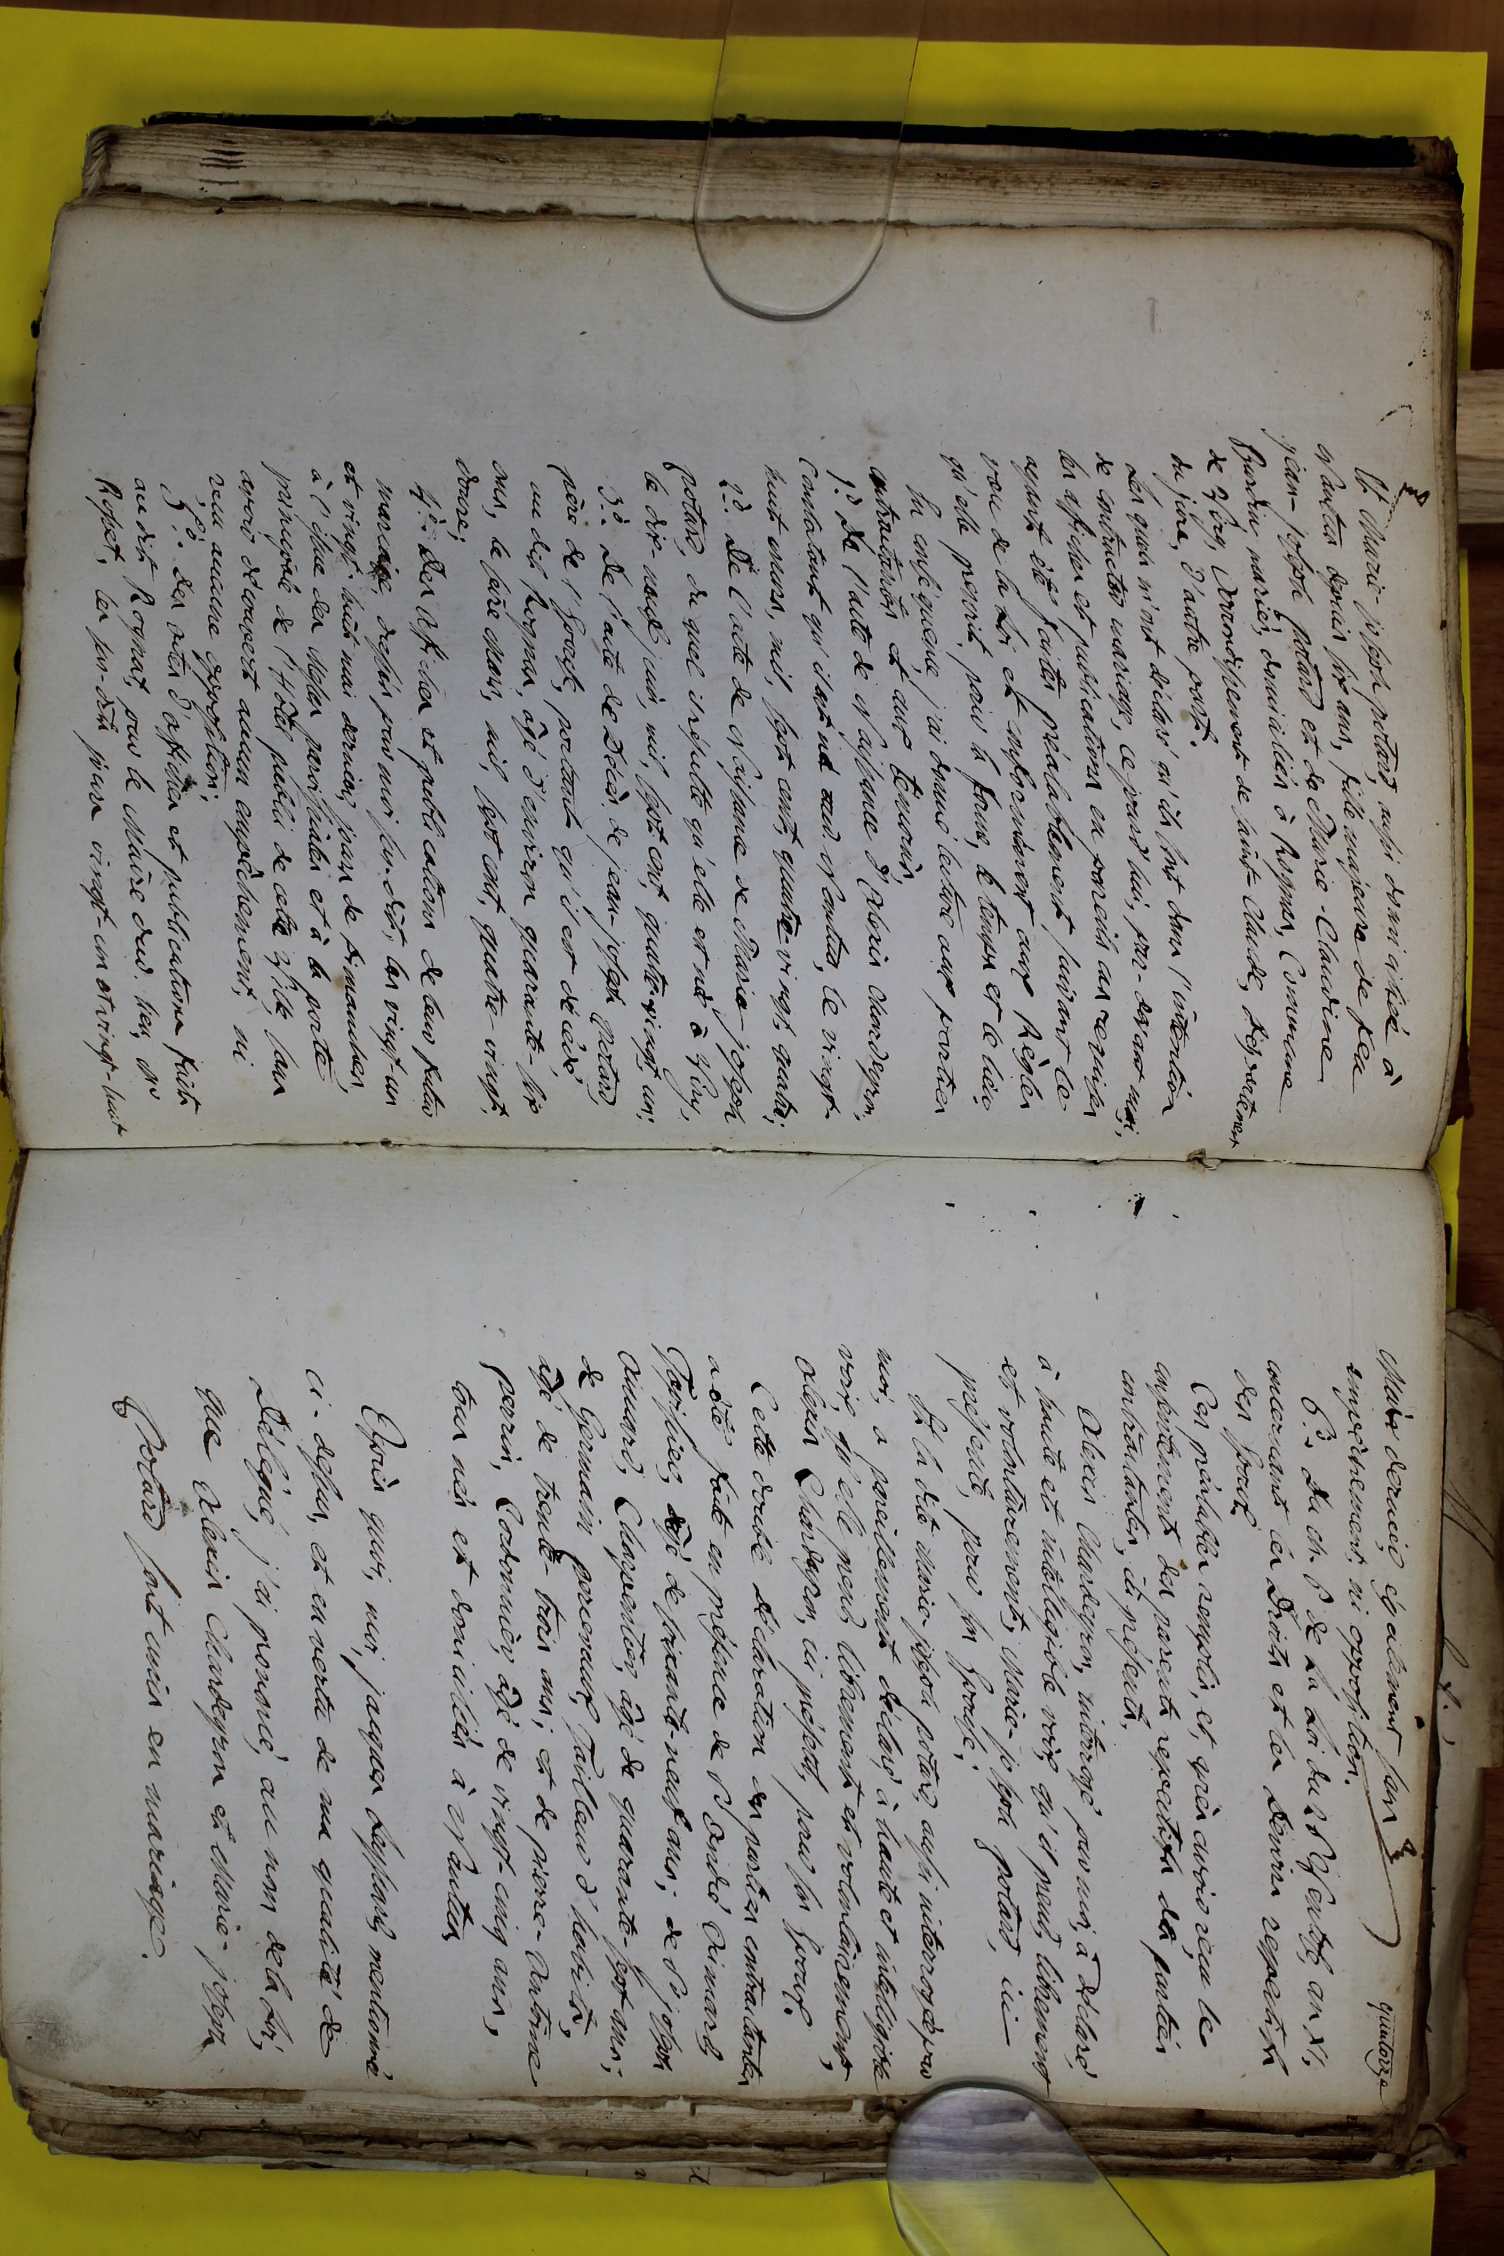 Et Marie-joseph potard, aussi domiciliée à
Nantua depuis six ans, fille majeure de feu
jean-joseph potard et de Marie-Claudine
Burdin mariés, domiciliés à Rogna, Commune
de Viry, Arrondissement de saint-Claude, département
du jura, d'autre part.
Les quels m'ont déclaré qu'ils sont dans l'intention
de contracter mariage, ce jourd'hui, par-devant moi,
les affiches et publications en pareils cas requises
ayant été faites préalablement suivant le
vœu de la Loi et conformément aux Règles
qu'elle prescrit pour la forme, le temps et le lieu
En conséquence, j'ai donné lecture aux parties
contractantes et aux témoins,
1.° De l'acte de naissance d'Alexis Chardeyron,
constatant qu'il est né aud. Nantua, le vingt-
huit mars, mil, sept cent, quatre-vingt-quatre;
2.° De l'acte de Naissance de Marie-joseph
potard, du quel il résulte qu'elle est née à Viry,
le dix-neuf juin, mil, sept cent, quatre-vingt, un;
3.° De l'acte de Décès de jean-joseph potard,
père de l'Epouse, portant qu'il est décédé,
au dit Rogna, âgé d'environ quarante-six
ans, le six Mars, mil, sept cent, quatre-vingt,
douze;
4.° Des Affiches et publications de leur futur
mariage, dressés par moi sus-dit, les vingt-un
et vingt-huit mai dernier, jours de dimanches,
à l'issue des Messes paroissiales et à la porte
principale de l'Hôtel public de cette Ville, sans
avoir découvert aucun empêchement, ni
reçu aucune opposition;
5.° Des actes d'affiches et publications faits
au dit Rognat, par le Maire dud. lieu, Mr
Rosset, les sus-dits jours vingt-un et vingt-huit
quatorze
Mai dernier, également sans
empêchement ni opposition.
6.° Du ch. 6 de la Loi du ventôse an XI,
concernant les Droits et les Devoirs respectifs
des Epoux.
Ces préalables remplis, et après avoir reçu le
consentement des parents respectifs des parties
contractantes, ici présents,
Alexis Chardeyron, interrogé par moi, a déclaré,
à haute et intelligible voix, qu'il prend, librement
et volontairement, Marie-joseph potard, ici
présente, pour son Epouse;
Et la dite Marie-joseph potard, aussi interrogée par
moi, a pareillement déclaré, à haute et intelligible
voix, qu'elle prend, librement et volontairement,
Alexis Chardeyron, ici présent, pour son Epoux.
Cette double déclaration des parties contractantes
a été faite en présence de Sr André
âgé de soixante-neuf ans; de Sr joseph
Charpentier, âgé de quarante-sept ans;
de Germain Tailleur d'habits,
âgé de trente-trois ans; et de pierre-Antoine
perrin, Cordonnier, âgé de vingt-cinq ans,
tous nés et domiciliés à Nantua
Après quoi, moi, jacques mentionné
ci-dessus, et en vertu de ma qualité de
Délégué, j'ai prononcé, au nom de la Loi,
que Alexis Chardeyron et Marie-joseph
Potard sont unis en mariage.